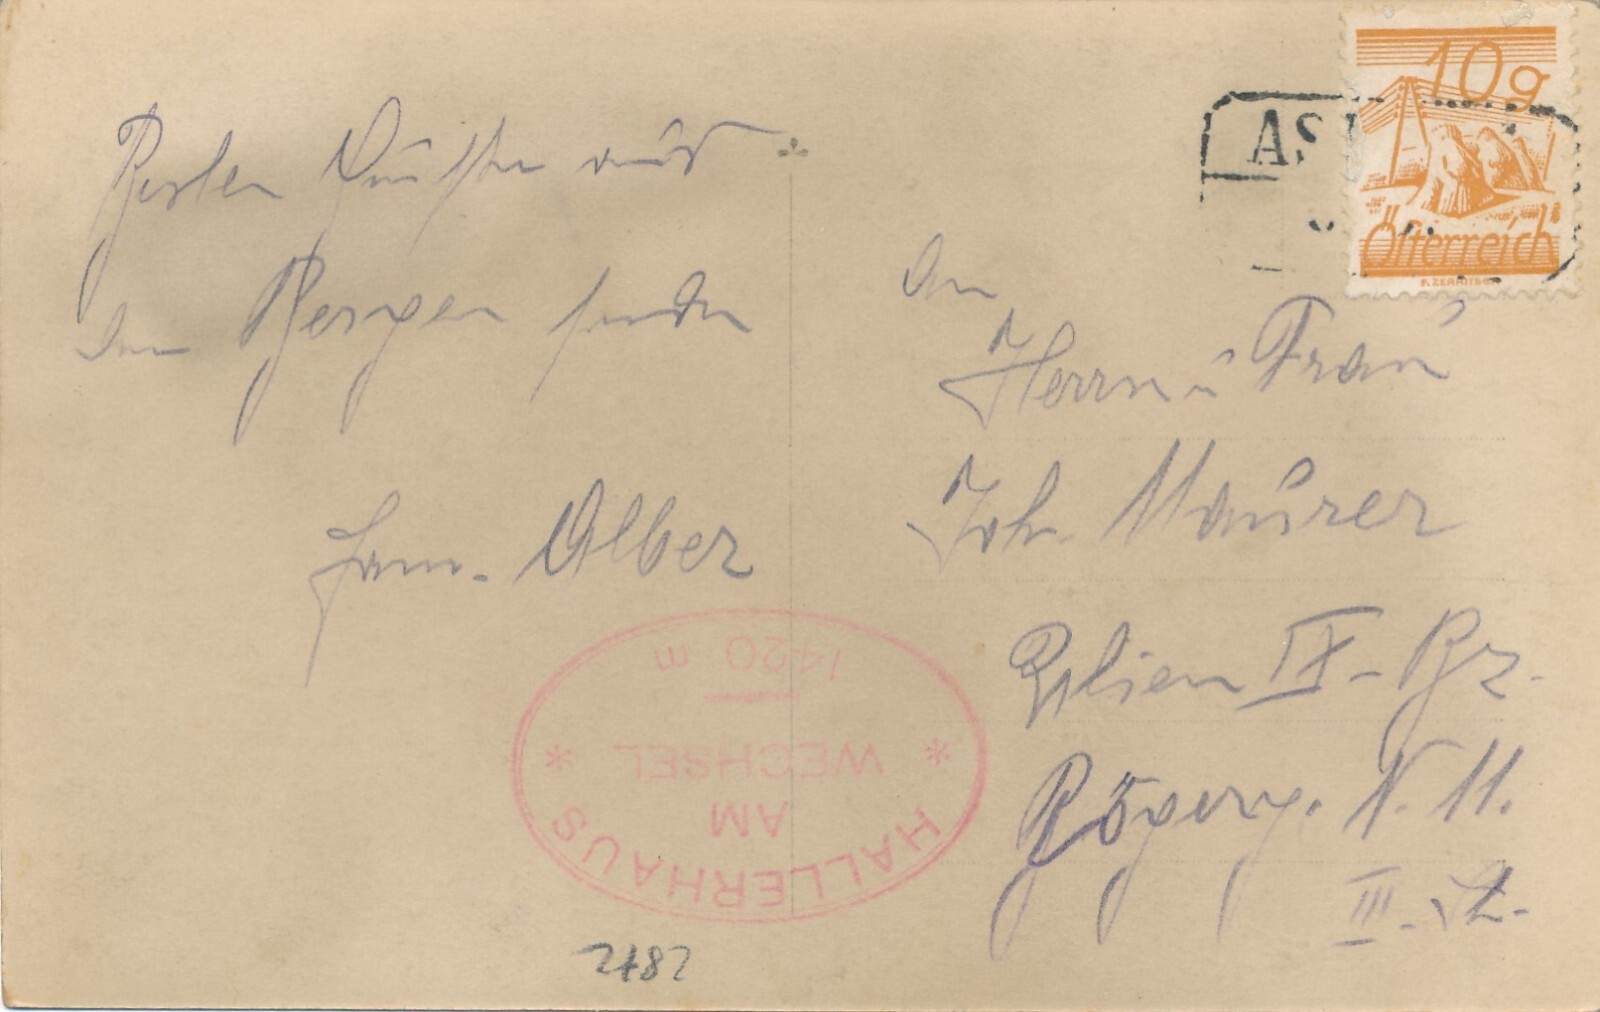 Besten Grüße aus
den Bergen senden
Fam. Alber
An
Herrn u Frau
Joh. Maurer
Wien IX - Bz.
Rögerg. N. 11.
III. St.
10g
Österreich
AS
HALLERHAUS
AM
* WECHSEL *
1420 m